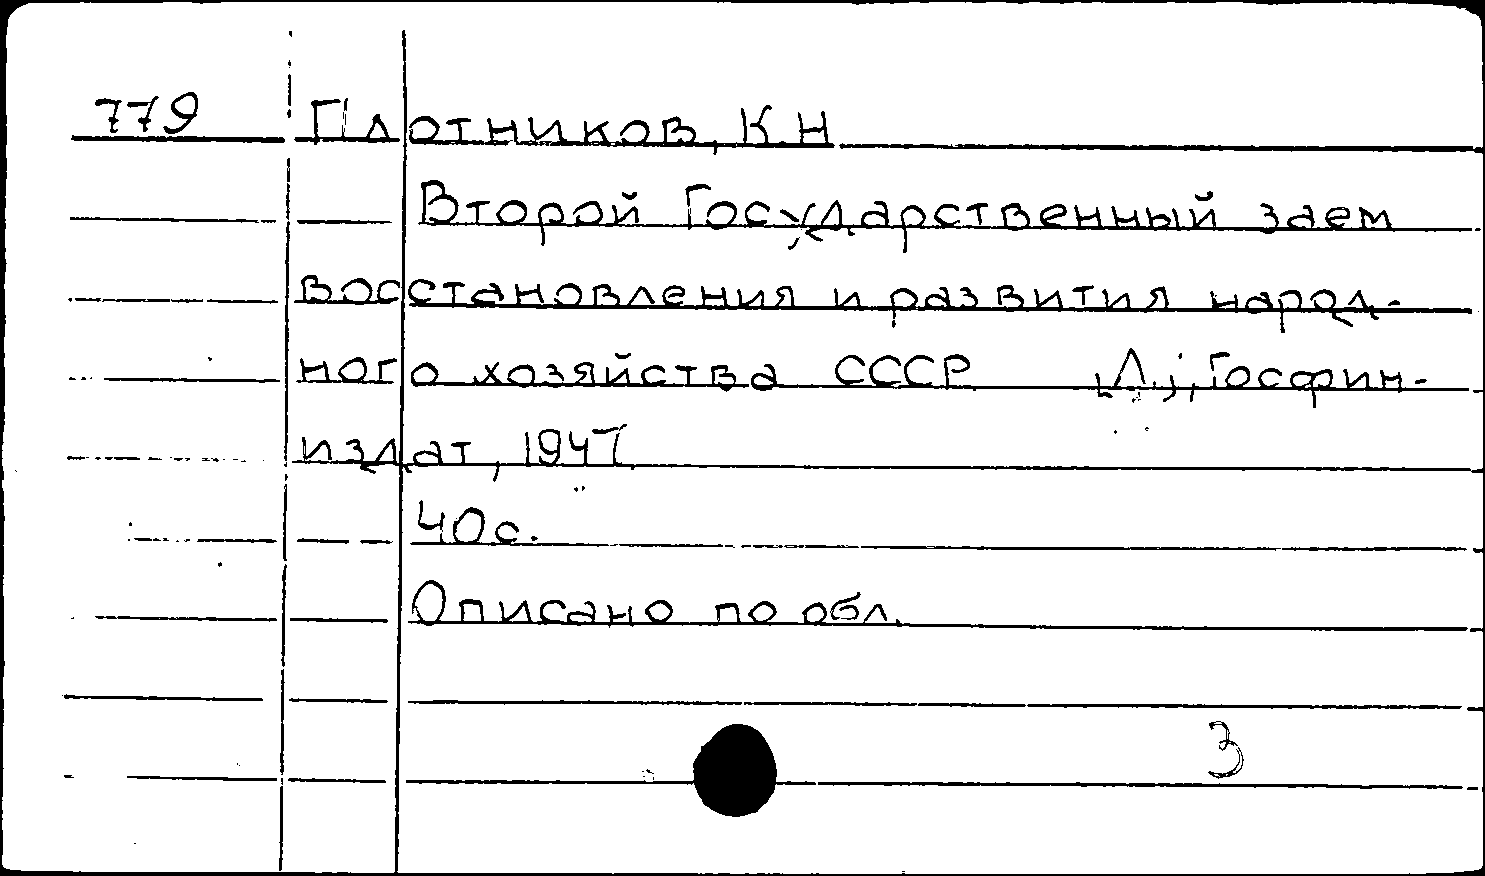 779 Плотников, К.Н
Второй Государственный заем
восстановления и развития народ-
ного хозяйства СССР Л., Госфин-
издат, 1947
40с.
Описано по обл.
3